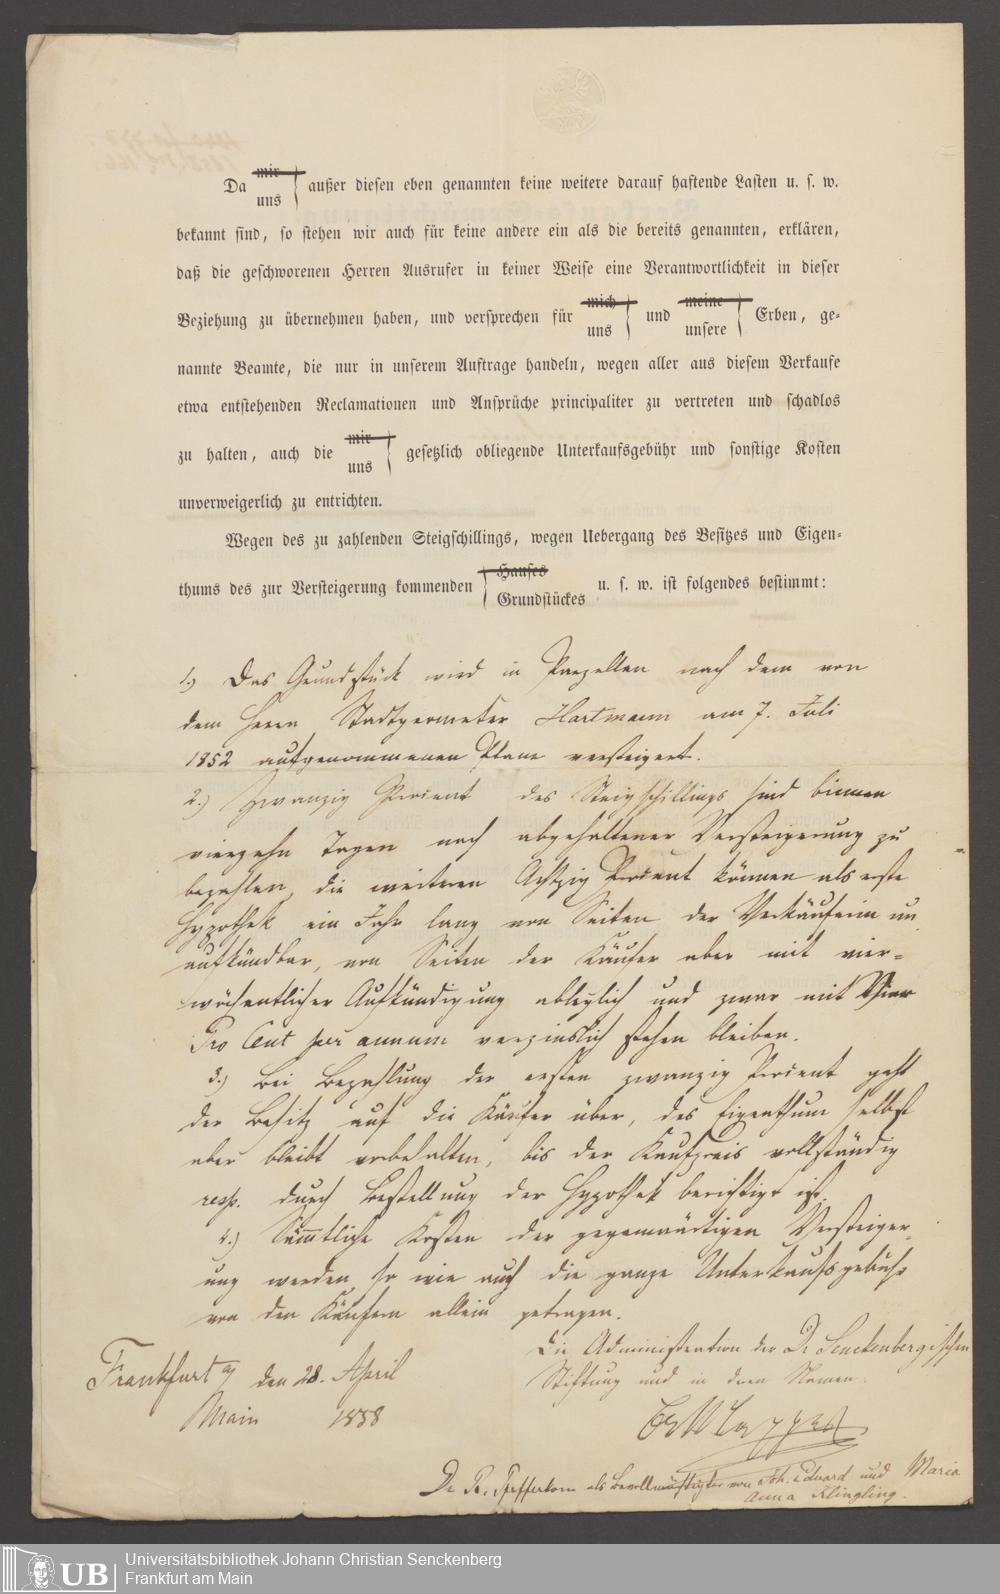 Da mir uns außer diesen eben genannten keine weitere darauf haftende Lasten u. s. w.
bekannt sind, so stehen wir auch für keine andere ein als die bereits genannten, erklären,
daß die geschworenen Herren Ausrufer in keiner Weise eine Verantwortlichkeit in dieser
Beziehung zu übernehmen haben, und versprechen für mich uns und meine unsere Erben, ge-
nannte Beamte, die nur in unserem Auftrage handeln, wegen aller aus diesem Verkaufe
etwa entstehenden Reclamationen und Ansprüche principaliter zu vertreten und schadlos
zu halten, auch die mir uns gesetzlich obliegende Unterkaufsgebühr und sonstige Kosten
unverweigerlich zu entrichten.
Wegen des zu zahlenden Steigschillings, wegen Uebergang des Besitzes und Eigen-
thums des zur Versteigerung kommenden Hauses Grundstückes u. s. w. ist folgendes bestimmt:
1.) Das Grundstück wird in Parzellen nach dem von
dem Herrn Stadtgeometer Hartmann am 7. Juli
1852 aufgenommenen Plane versteigert.
2.) Zwanzig Procent des Steigschillings sind binnen
vierzehn Tagen nach abgehaltener Versteigerung zu
bezahlen, die weiteren Achtzig Procent können als erste
Hypothek ein Jahr lang von Seiten der Verkäuferin un
aufkündbar, von Seiten der Käufer aber mit vier-
wöchentlicher Aufkündigung ableglich und zwar mit Vier
Pro Cent per annum verzinslich stehen bleiben.
3.) Bei Bezahlung der ersten zwanzig Procent geht
der Besitz auf die Käufer über, das Eigenthum selbst
aber bleibt vorbehalten, bis der Kaufpreis vollständig
resp. durch Bestellung der Hypothek berichtigt ist.
4.) Sämmtliche Kosten der gegenwärtigen Versteiger
ung werden, so wie auch die ganze Unterkaufsgebühr
von den Käufern allein getragen.
Die Administration der Dr Senckenbergischen
Stiftung und in deren Namen:
Frankfurt a/ den 28. April
Main 1858
Dr Pfefferkorn als Bevollmächtigter von Joh. Eduard und Maria
Anna Klingling.
UB
Universitätsbibliothek Johann Christian Senckenberg
Frankfurt am Main